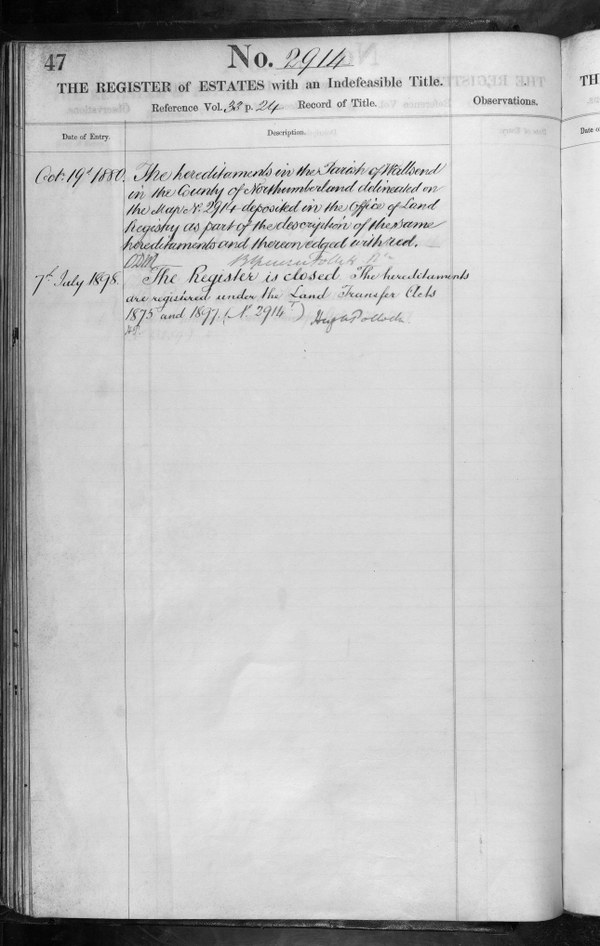 47
No. 2914
THE REGISTER of ESTATES with an Indefeasible Title.
Reference Vol. 33 p. 24 Record of Title.
Observations.
Date of Entry.
Description.
Oct 19th 1880.
The hereditaments in the Parish of Wallsend
in the County of Northumberland delineated on
the Map No. 2914 deposited in the Office of Land
Registry as part of the description of the same
hereditaments and thereon edged with red.
7th July 1898.
The Register is closed The hereditaments
are registered under the Land Transfer Acts
1875 and 1897. (No. 2914)
Hugh Pollock
TH
Date of